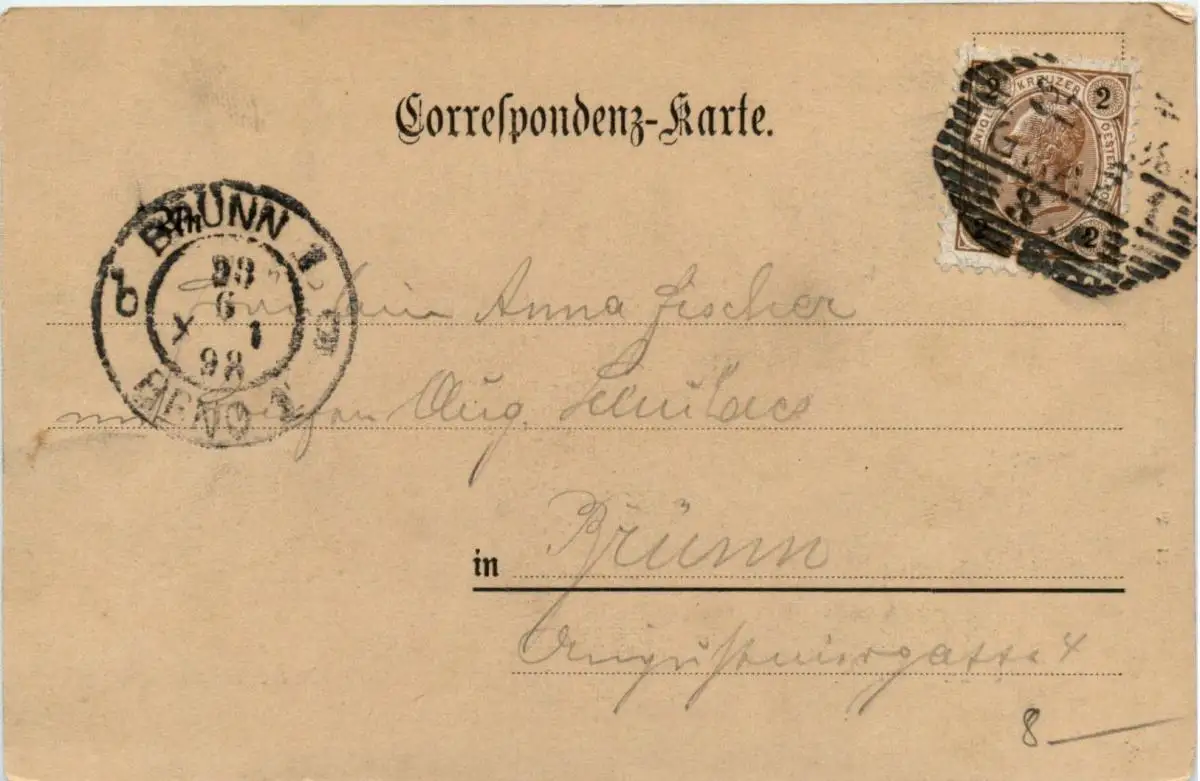 Correspondenz-Karte.
2 KREUZER 2
2 2
BRÜNN 1
An
b
23
6
1
98
BRNO 1
Fräulein Anna Fischer
Aug.
in Brünn
Augustinergasse 4
8